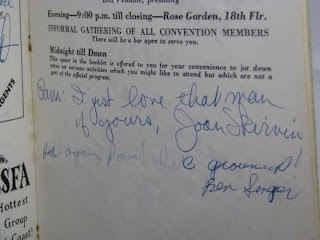 presiding
Evening—9:00 p.m. till closing—Rose Garden, 18th Flr.
INFORMAL GATHERING OF ALL CONVENTION MEMBERS
There will be a bar open to serve you.
Midnight till Dawn
The space in the booklet is offered to you for your convenience to jot down
notes on various activities which you might like to attend but which are not a
part of the official program.
Pam: I just love that man
of yours, Joan
again I've grown up!
Ben Singer
AGENTS
SFA
Hottest
Group
Coast!